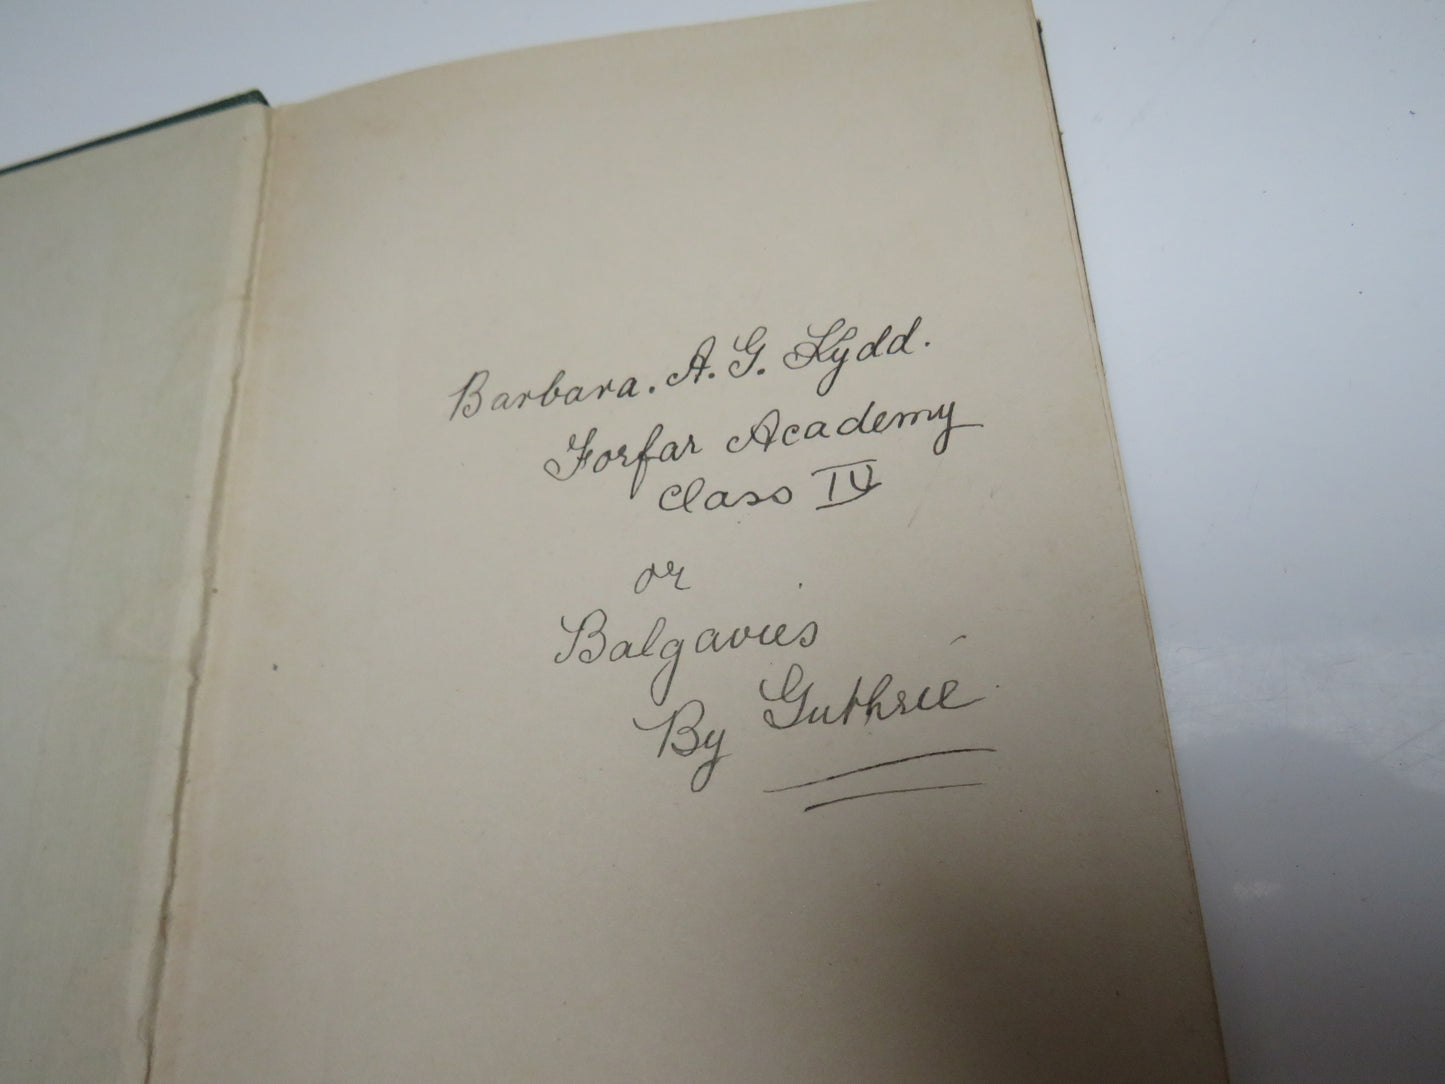 Barbara. A. G. Kydd.
Forfar Academy
Class IV
or
Balgavies
By Guthrie